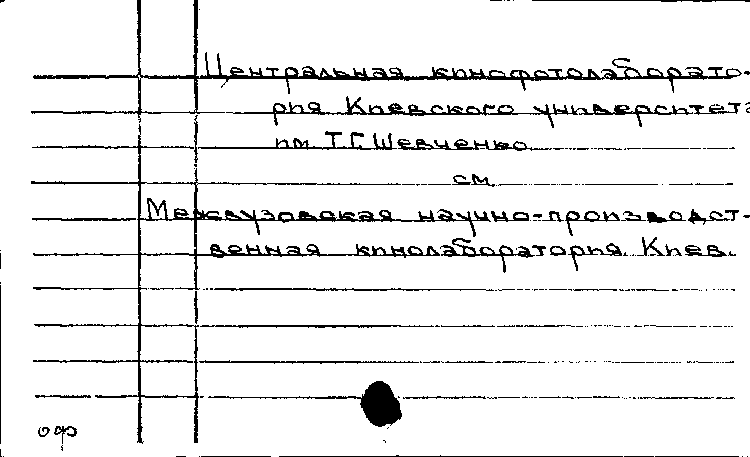 Центральная кинофотолаборато-
рия Киевского университета
им. Т.Г. Шевченко
см.
Межвузовская научно-производст-
венная кинолаборатория. Киев.
оф